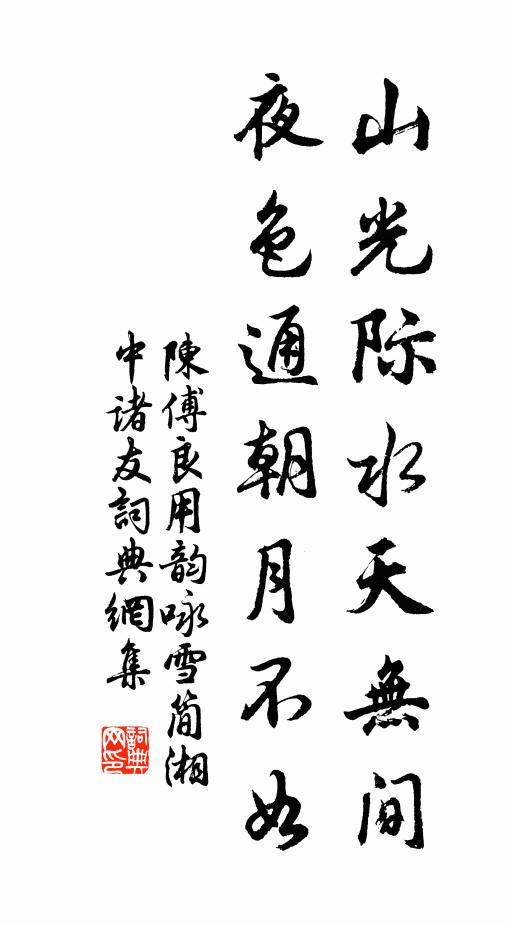 山光际水天無间
夜色通朝月不如
陳傅良用韵咏雪简湘
中诸友詞典網集
詞典
网印